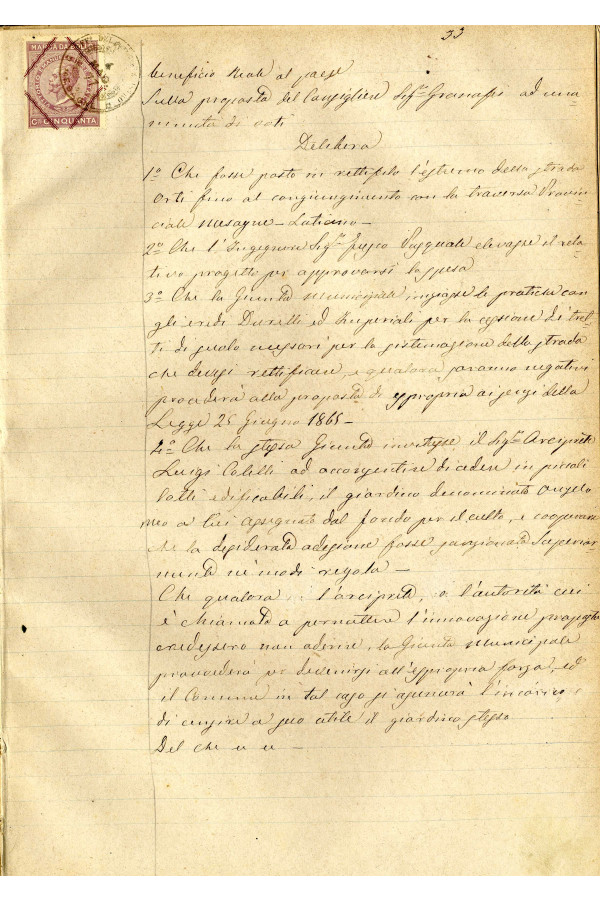 33
MARCA DA BOLLO
Cmi CINQUANTA
beneficio Reale al paese
Sulla proposta del Consigliere Sigr Granafei ad una-
nimità di voti
Delibera
1o Che fosse posto in rettifilo l'estremo della strada
Orti fino al congiungimento con la traversa Provin-
ciale Mesagne - Latiano -
2o Che l'Ingegnere Sigr Fusco Pasquale elevasse il rela-
tivo progetto per approvarsi la spesa
3o Che la Giunta Municipale iniziasse le pratiche con
gli eredi Durelli ed Imperiali per la cessione di trat-
ti di suolo necessari per la sistemazione della strada
che devesi rettificare, e qualora saranno negativi
procederà alla proposta di espropria ai sensi della
Legge 25 Giugno 1865 -
4o Che la stessa Giunta invitasse il Sigr Arciprete
Luigi Colelli ad acconsentire di cedere in piccoli
lotti edificabili, il giardino denominato Angelo
a lui assegnato dal fondo per il culto, e cooperare
che la desiderata adesione fosse sanzionata Superior-
mente né modi regola -
Che qualora l'arciprete, o l'autorità cui
è chiamata a permettere l'innovazione progettata
credessero non aderire, la Giunta Municipale
provvederà per devenirsi all'espropria forza, ed
il Comune in tal caso si assumerà l'incarico
di cingere a suo utile il giardino stesso
Del che